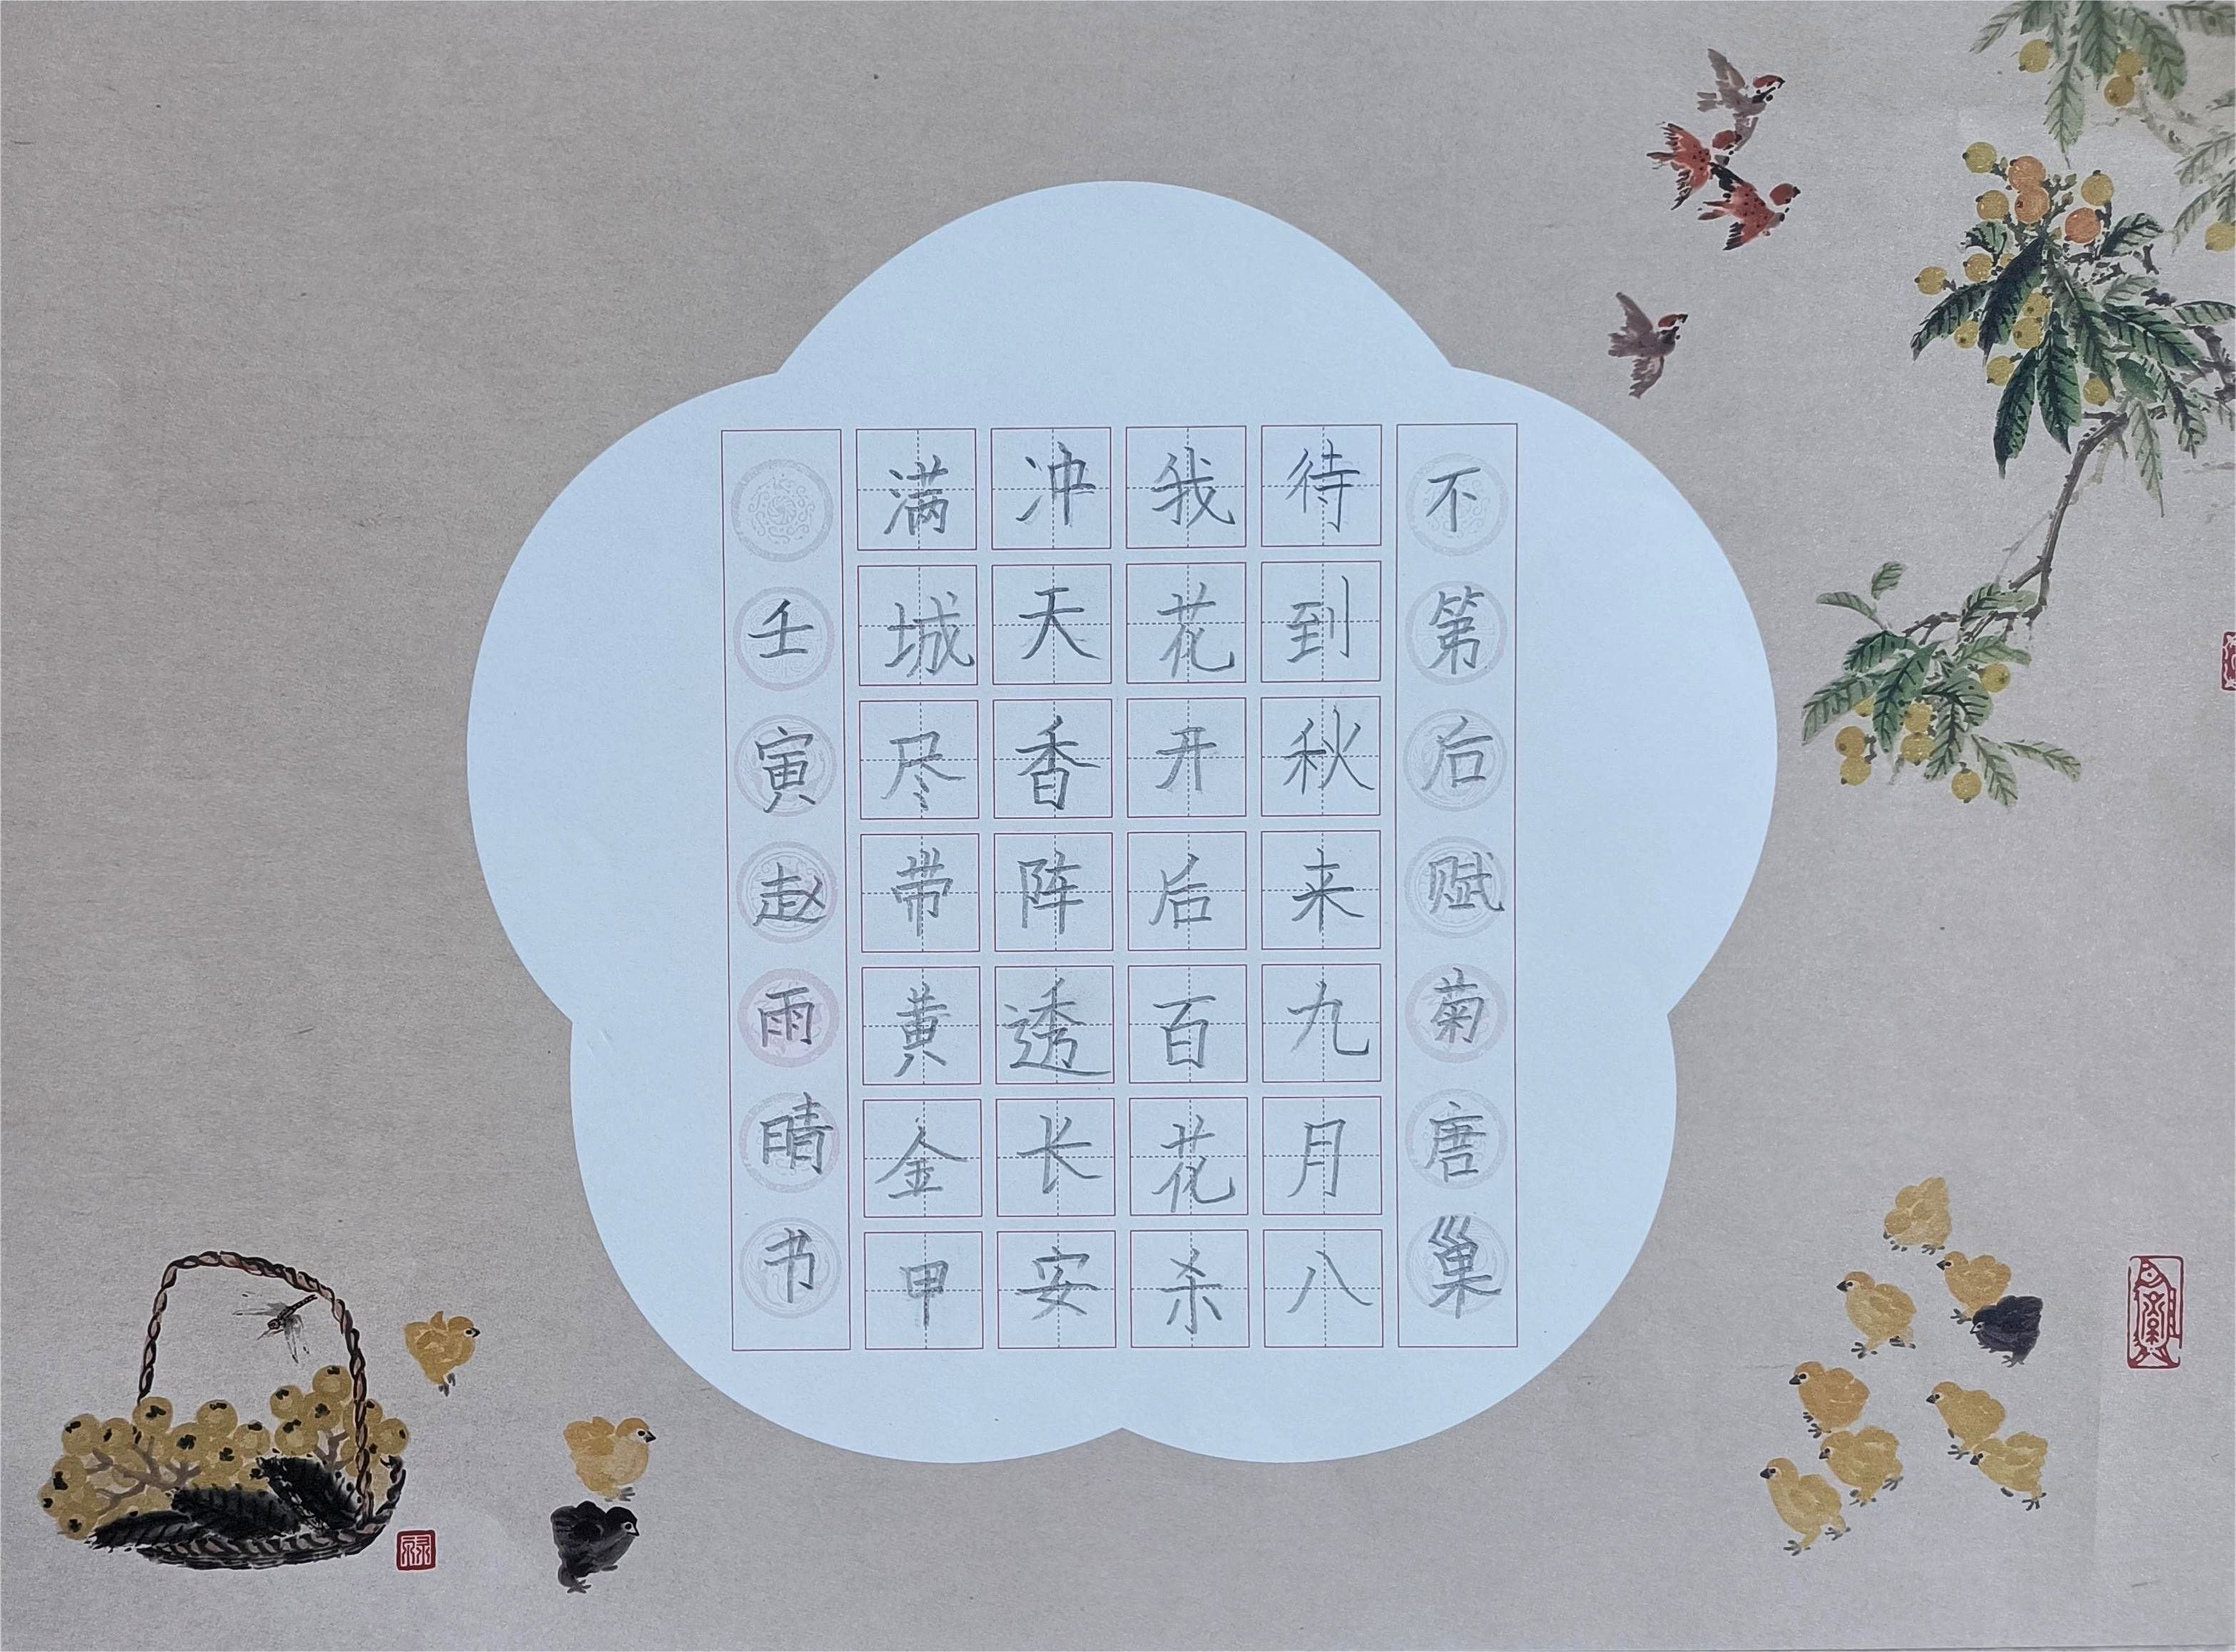 不第后赋菊唐巢
待到秋来九月八
我花开后百花杀
冲天香阵透长安
满城尽带黄金甲
壬寅赵雨晴书